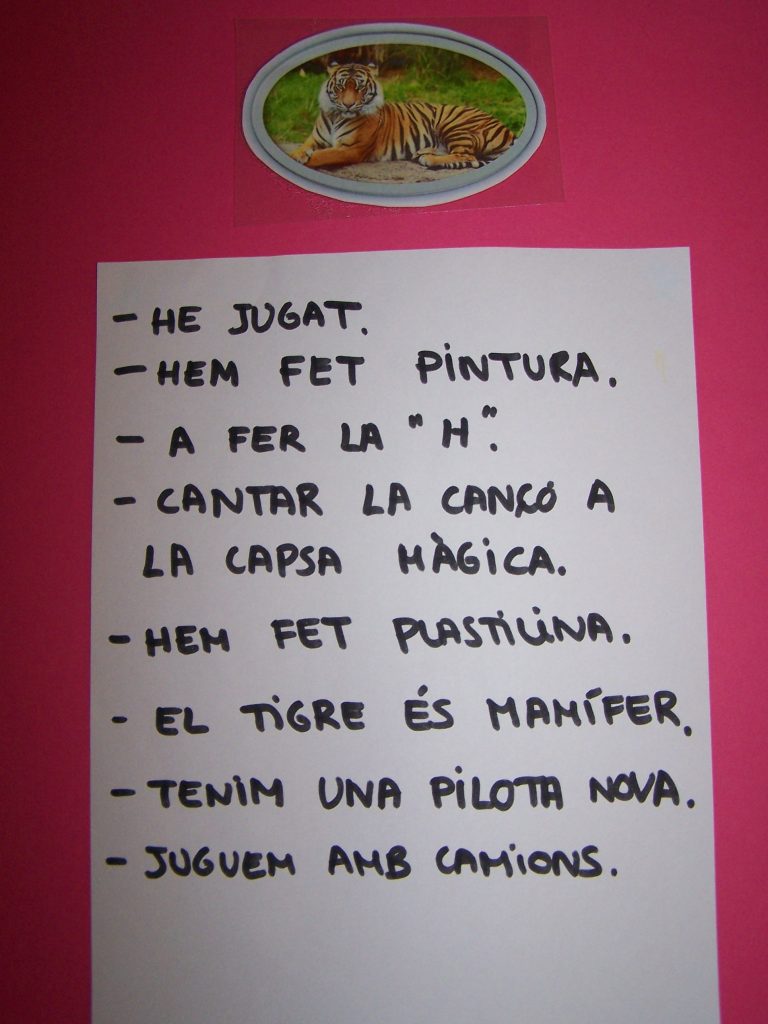 - HE JUGAT.
- HEM FET PINTURA.
- A FER LA "H".
- CANTAR LA CANÇÓ A
LA CAPSA MÀGICA.
- HEM FET PLASTILINA.
- EL TIGRE ÉS MAMÍFER.
- TENIM UNA PILOTA NOVA.
- JUGUEM AMB CAMIONS.